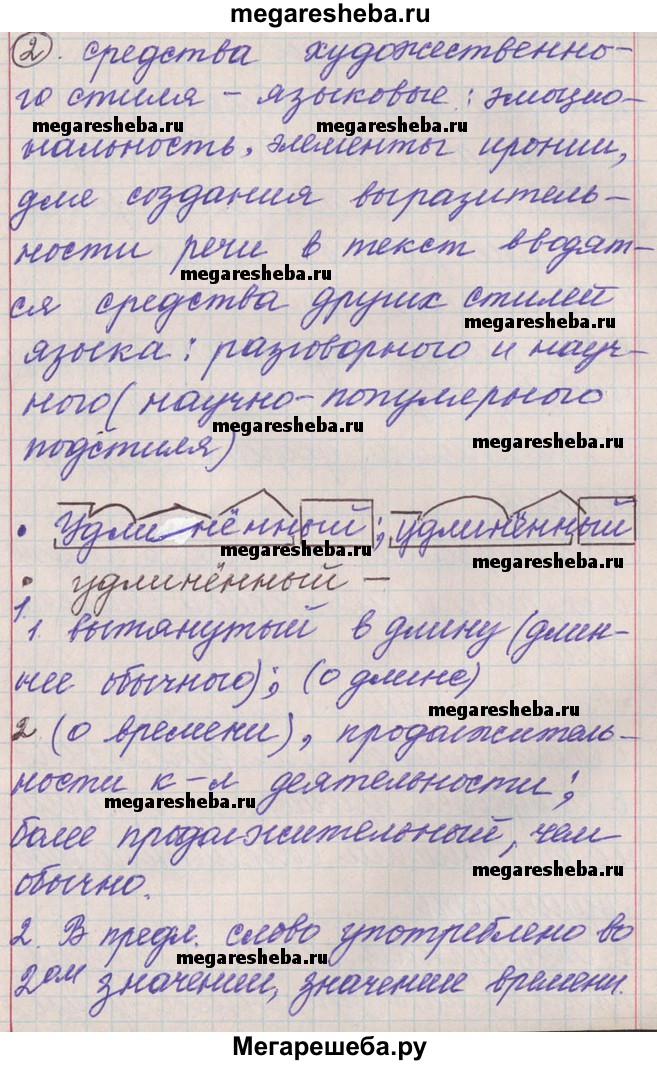 megaresheba.ru
2. средства художественно-
го стиля – языковые: эмоцио-
megaresheba.ru megaresheba.ru
нальность, элементы иронии,
для создания выразитель-
ности речи в текст вводят-
megaresheba.ru
ся средства других стилей
megaresheba.ru
языка: разговорного и науч-
ного (научно-популярного
megaresheba.ru
подстиля) megaresheba.ru
• Удлинённый; удлинённый
megaresheba.ru
• удлинённый –
1.
1. вытянутый в длину (длин-
нее обычного); (о длине)
megaresheba.ru
2 (о времени), продолжитель-
ности к-л деятельности;
megaresheba.ru
более продолжительный, чем
megaresheba.ru
обычно.
2. В предл. слово употреблено во
megaresheba.ru
2ом значении, значение времени.
Мегарешеба.ру